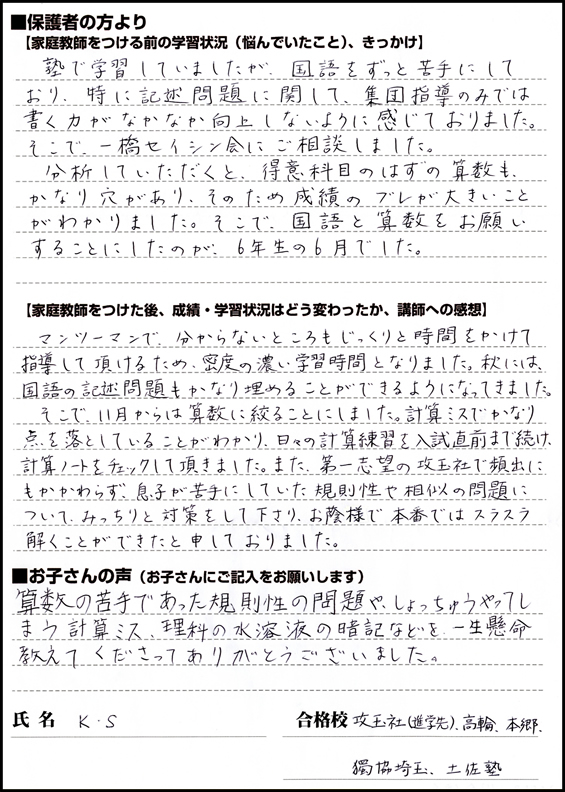 ■保護者の方より
【家庭教師をつける前の学習状況（悩んでいたこと）、きっかけ】
塾で学習していましたが、国語をずっと苦手にして
おり、特に記述問題に関して、集団指導のみでは
書く力がなかなか向上しないように感じておりました。
そこで、一橋セイシン会にご相談しました。
分析していただくと、得意科目のはずの算数も、
かなり穴があり、そのため成績のブレが大きいこと
がわかりました。そこで、国語と算数をお願い
することにしたのが、6年生の6月でした。
【家庭教師をつけた後、成績・学習状況はどう変わったか、講師への感想】
マンツーマンで、分からないところもじっくりと時間をかけて
指導して頂けるため、密度の濃い学習時間となりました。秋には、
国語の記述問題もかなり埋めることができるようになってきました。
そこで、11月からは算数に絞ることにしました。計算ミスでかなり
点を落としていることがわかり、日々の計算練習を入試直前まで続け、
計算ノートをチェックして頂きました。また、第一志望の攻玉社で頻出に
もかかわらず、息子が苦手にしていた規則性や相似の問題に
ついて、みっちりと対策をして下さり、お蔭様で本番ではスラスラ
解くことができたと申しておりました。
■お子さんの声（お子さんにご記入をお願いします）
算数の苦手であった規則性の問題や、しょっちゅうやってし
まう計算ミス、理科の水溶液の暗記などを、一生懸命
教えてくださってありがとうございました。
氏名 K・S
合格校 攻玉社(進学先)、高輪、本郷、
獨協埼玉、土佐塾